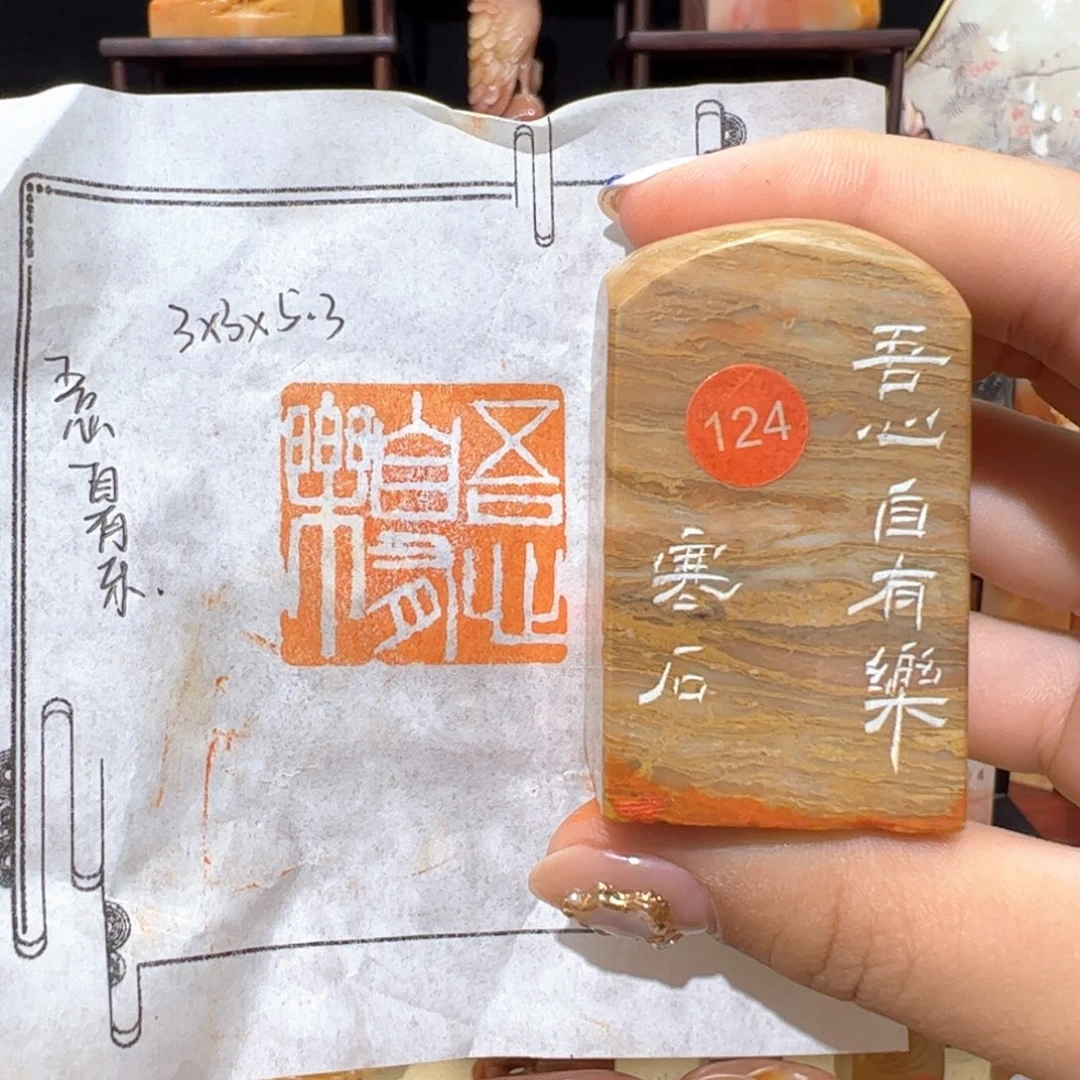 3x3x5.3
吾心
自有
乐.
吾心自有樂
124
寒石
吾心
自有
樂